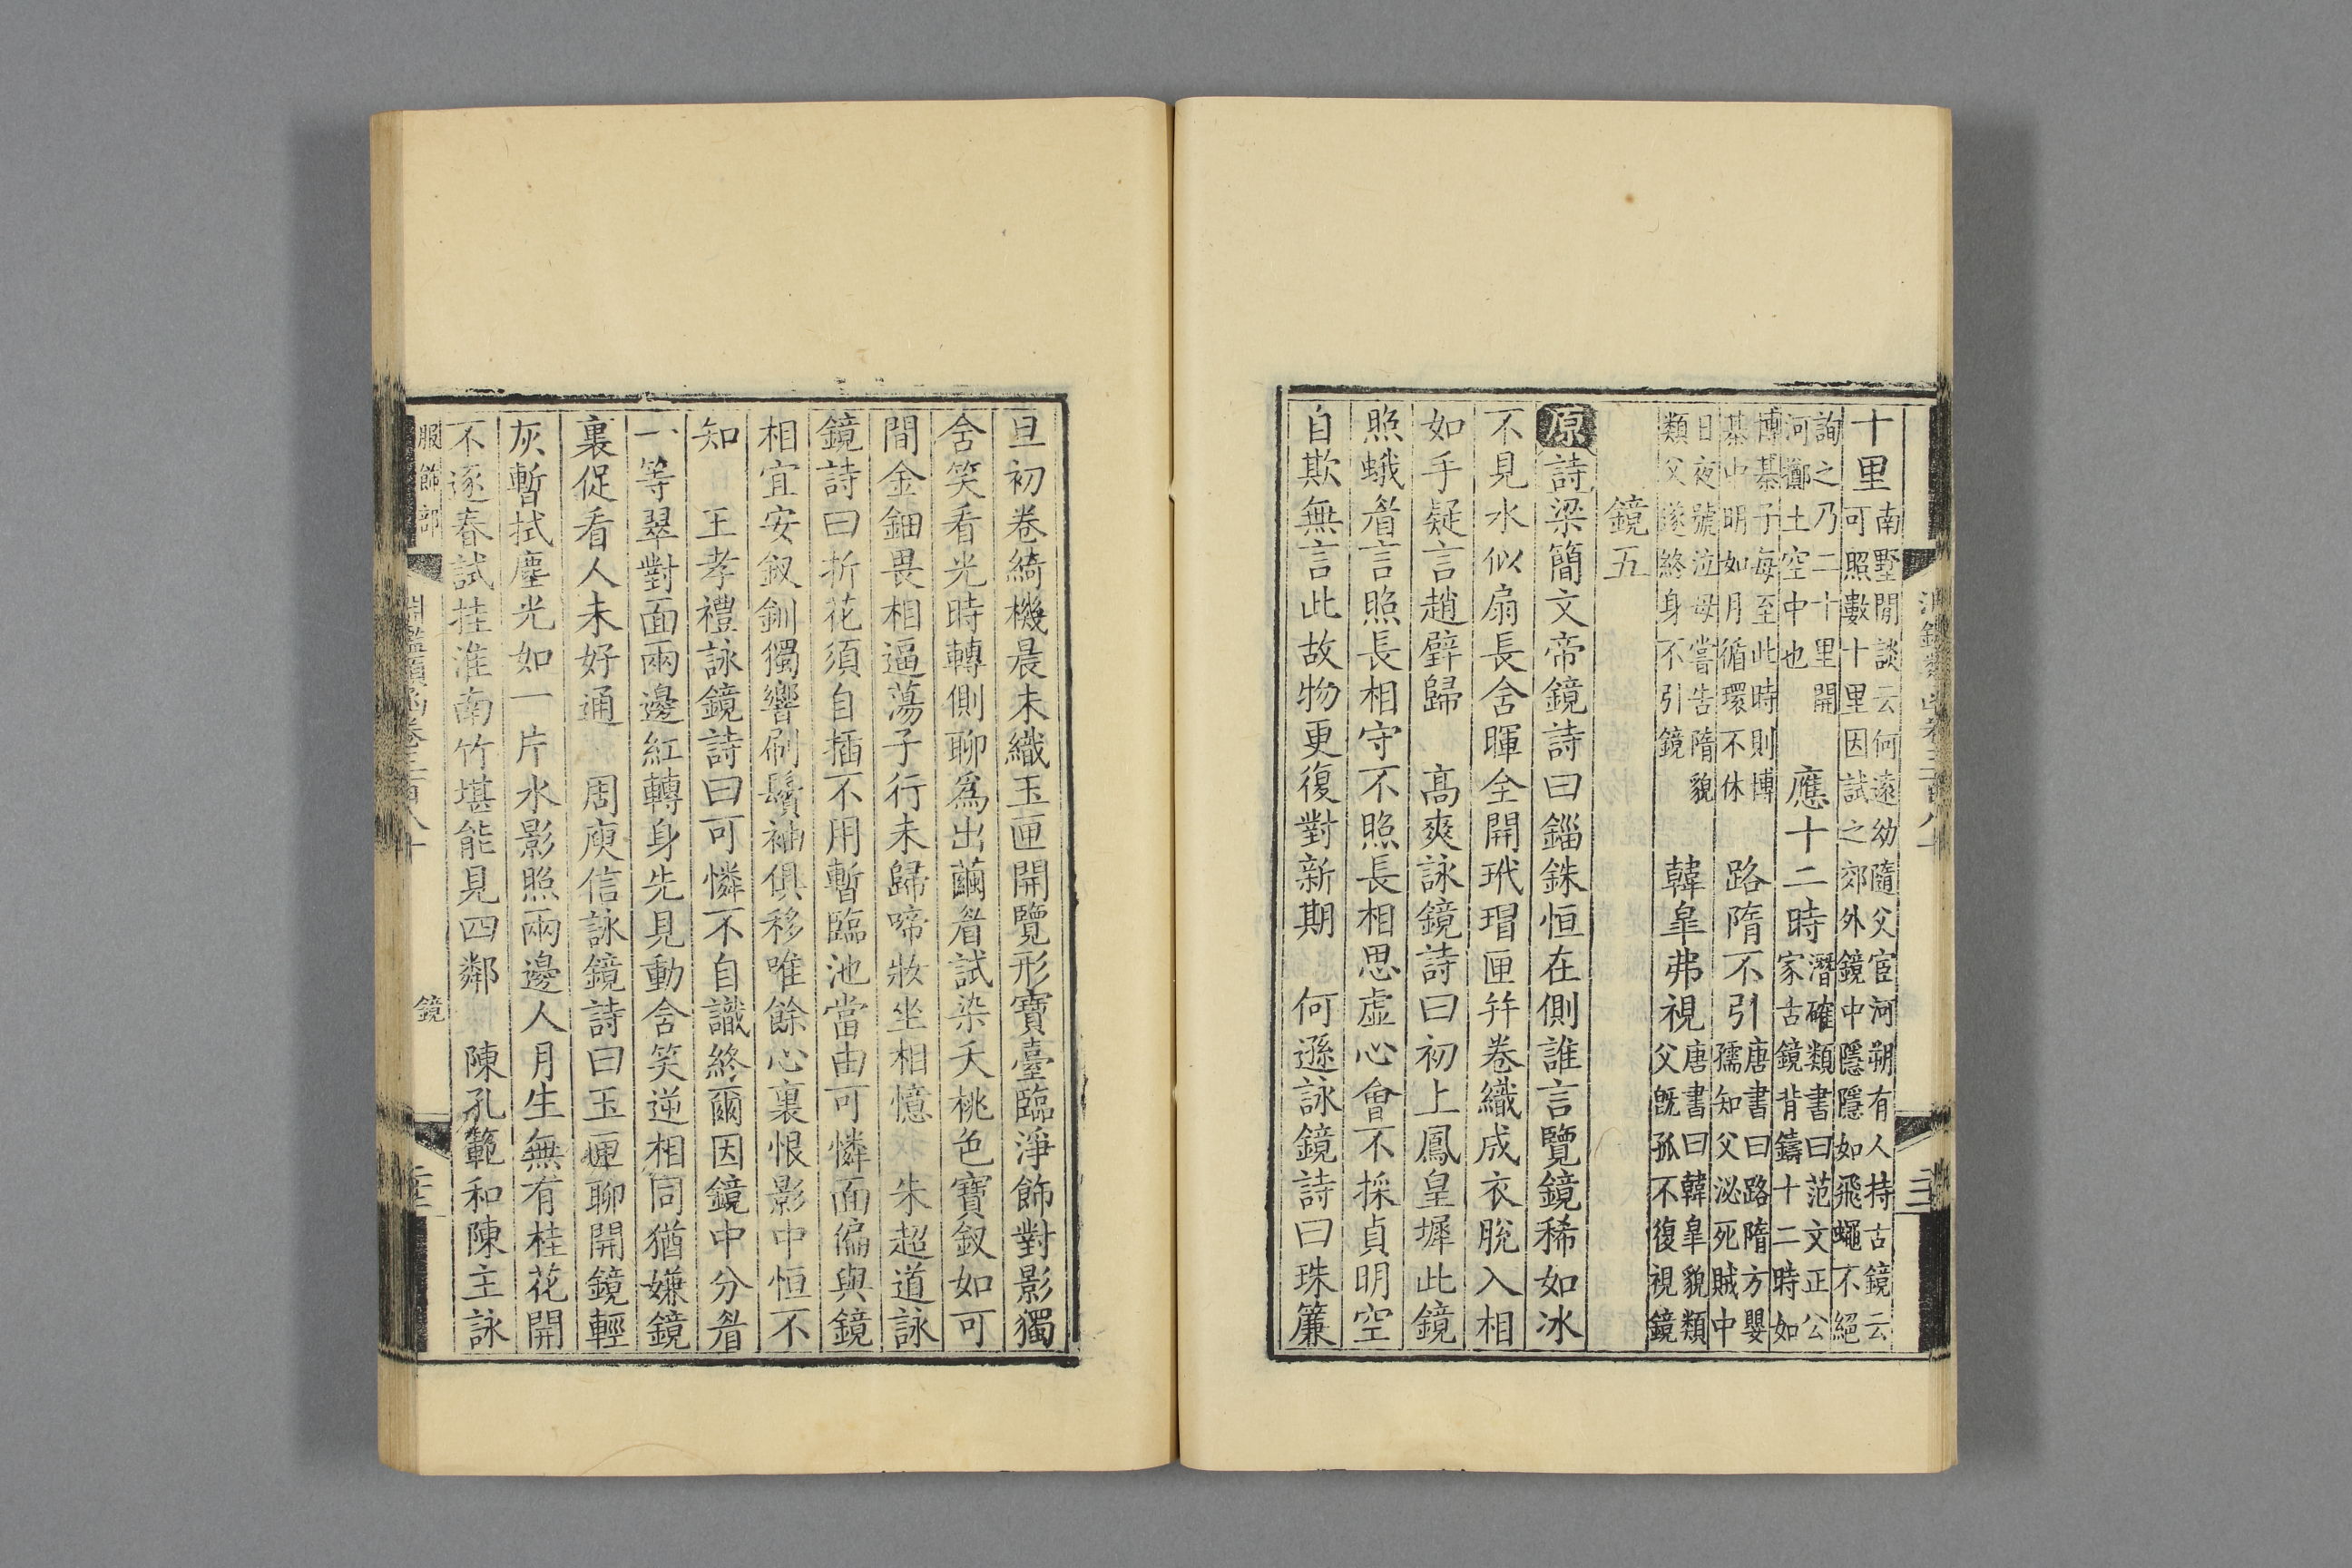 十里
南墅閒談云何遠幼隨父宦河朔有人持古鏡云
可照數十里因試之郊外鏡中隱隱如飛蠅不絕
詢之乃二十里開
河土空中也
應十二時
潛確類書曰范文正公
家古鏡背鑄十二時如
博棊子每至此時則博
棊中明如月循環不休
路隋不引
唐書曰路隋方嬰
孺知父泌死賊中
日夜號泣母嘗告隋貌
類父遂終身不引鏡
韓臯弗視
唐書曰韓臯貌類
父既孤不復視鏡
鏡五
原詩梁簡文帝鏡詩曰錙銖恒在側誰言覽鏡稀如冰
不見水似扇長含暉全開玳瑁匣幷卷織成衣脫入相
如手疑言趙璧歸　高爽詠鏡詩曰初上鳳皇墀此鏡
照蛾眉言照長相守不照長相思虛心會不採貞明空
自欺無言此故物更復對新期　何遜詠鏡詩曰珠簾
旦初卷綺機晨未織玉匣開覽形寶臺臨淨飾對影獨
含笑看光時轉側聊爲出繭眉試染夭桃色寶釵如可
間金鈿畏相逼蕩子行未歸啼妝坐相憶　朱超道詠
鏡詩曰折花須自插不用暫臨池當由可憐面偏與鏡
相宜安釵釧獨響刷鬢袖俱移唯餘心裏恨影中恒不
知　王孝禮詠鏡詩曰可憐不自識終爾因鏡中分眉
一等翠對面兩邊紅轉身先見動含笑逆相同猶嫌鏡
裏促看人未好通　周庾信詠鏡詩曰玉匣聊開鏡輕
灰暫拭塵光如一片水影照兩邊人月生無有桂花開
不逐春試挂淮南竹堪能見四鄰　陳孔範和陳主詠
服飾部
淵鑑類函卷三百八十
鏡